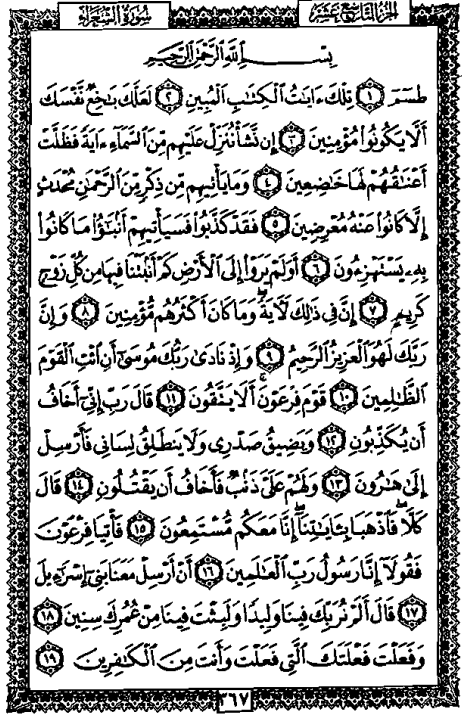 الجزء التاسع عشر سورة الشعراء
بِسْمِ اللَّهِ الرَّحْمَٰنِ الرَّحِيمِ
طسٓمٓ ١ تِلْكَ ءَايَٰتُ ٱلْكِتَٰبِ ٱلْمُبِينِ ٢ لَعَلَّكَ بَٰخِعٌ نَّفْسَكَ
أَلَّا يَكُونُوا۟ مُؤْمِنِينَ ٣ إِن نَّشَأْ نُنَزِّلْ عَلَيْهِم مِّنَ ٱلسَّمَآءِ ءَايَةً فَظَلَّتْ
أَعْنَٰقُهُمْ لَهَا خَٰضِعِينَ ٤ وَمَا يَأْتِيهِم مِّن ذِكْرٍ مِّنَ ٱلرَّحْمَٰنِ مُحْدَثٍ
إِلَّا كَانُوا۟ عَنْهُ مُعْرِضِينَ ٥ فَقَدْ كَذَّبُوا۟ فَسَيَأْتِيهِمْ أَنۢبَٰٓؤُا۟ مَا كَانُوا۟
بِهِۦ يَسْتَهْزِءُونَ ٦ أَوَلَمْ يَرَوْا۟ إِلَى ٱلْأَرْضِ كَمْ أَنۢبَتْنَا فِيهَا مِن كُلِّ زَوْجٍ
كَرِيمٍ ٧ إِنَّ فِى ذَٰلِكَ لَءَايَةً ۖ وَمَا كَانَ أَكْثَرُهُم مُّؤْمِنِينَ ٨ وَإِنَّ
رَبَّكَ لَهُوَ ٱلْعَزِيزُ ٱلرَّحِيمُ ٩ وَإِذْ نَادَىٰ رَبُّكَ مُوسَىٰٓ أَنِ ٱئْتِ ٱلْقَوْمَ
ٱلظَّٰلِمِينَ ١٠ قَوْمَ فِرْعَوْنَ ۚ أَلَا يَتَّقُونَ ١١ قَالَ رَبِّ إِنِّىٓ أَخَافُ
أَن يُكَذِّبُونِ ١٢ وَيَضِيقُ صَدْرِى وَلَا يَنطَلِقُ لِسَانِى فَأَرْسِلْ
إِلَىٰ هَٰرُونَ ١٣ وَلَهُمْ عَلَىَّ ذَنۢبٌ فَأَخَافُ أَن يَقْتُلُونِ ١٤ قَالَ
كَلَّا ۖ فَٱذْهَبَا بِـَٔايَٰتِنَآ ۖ إِنَّا مَعَكُم مُّسْتَمِعُونَ ١٥ فَأْتِيَا فِرْعَوْنَ
فَقُولَآ إِنَّا رَسُولُ رَبِّ ٱلْعَٰلَمِينَ ١٦ أَنْ أَرْسِلْ مَعَنَا بَنِىٓ إِسْرَٰٓءِيلَ
١٧ قَالَ أَلَمْ نُرَبِّكَ فِينَا وَلِيدًا وَلَبِثْتَ فِينَا مِنْ عُمُرِكَ سِنِينَ ١٨
وَفَعَلْتَ فَعْلَتَكَ ٱلَّتِى فَعَلْتَ وَأَنتَ مِنَ ٱلْكَٰفِرِينَ ١٩
٣٦٧